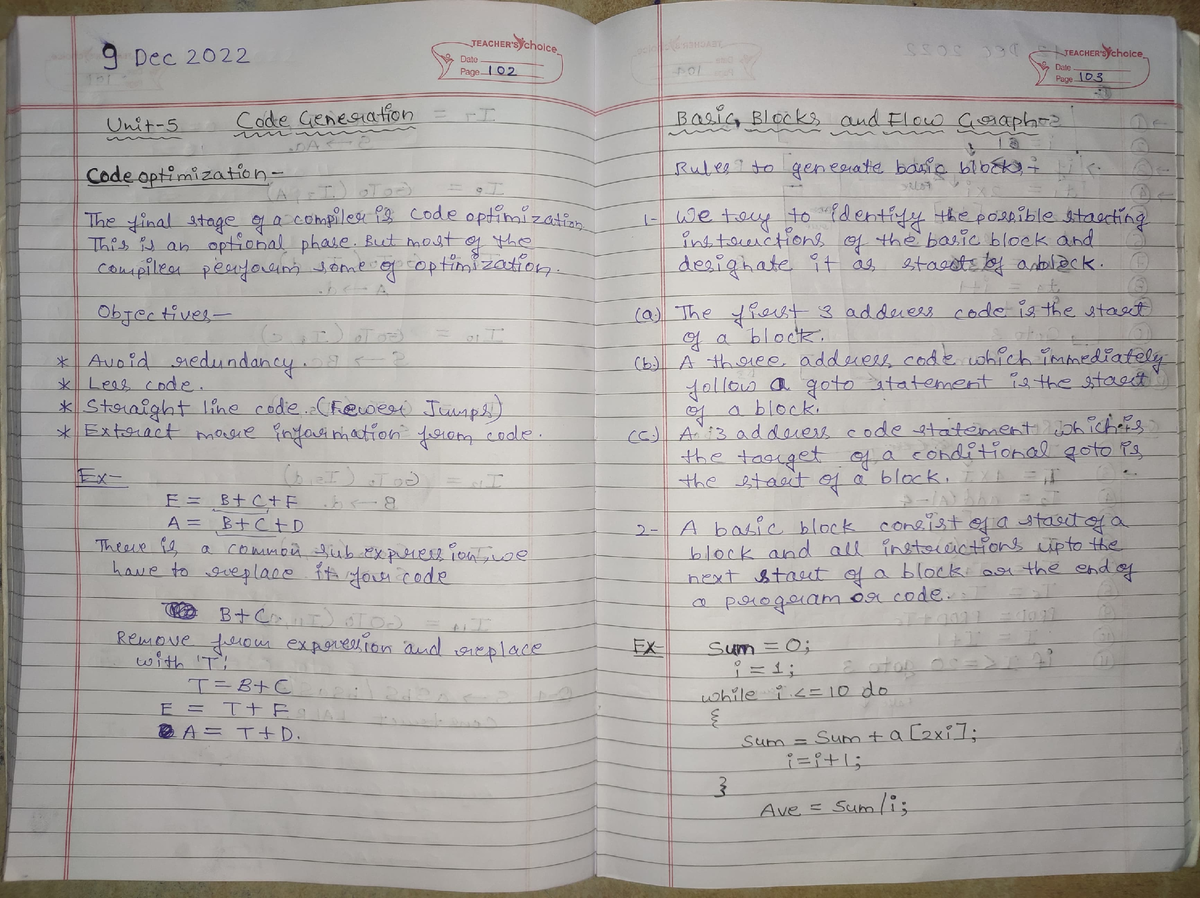 9 Dec 2022
TEACHER'S choice
Date
Page 102
Unit-5 Code Generation
Code optimization-
The final stage of a compiler is code optimization
This is an optional phase. But most of the
compiler perform some of optimization.
Objectives—
* Avoid redundancy.
* Less code.
* Straight line code. (Fewer Jumps)
* Extract more information from code.
Ex-
E = B+C+F
A = B+C+D
There is a common sub expression, we
have to replace it for code
B+C
Remove from expression and replace
with 'T'
T = B+C
E = T+F
A = T+D.
TEACHER'S choice
Date
Page 103
Basic Blocks and Flow Graph-
Rules to generate basic blocks-
1- We try to identify the possible starting
instructions of the basic block and
designate it as start of a block.
(a.) The first 3 address code is the start
of a block.
(b.) A three address code which immediately
follow a goto statement is the start
of a block.
(c.) A 3 address code statement which is
the target of a conditional goto is
the start of a block.
2- A basic block consist of a start of a
block and all instructions upto the
next start of a block or the end of
a program or code.
Ex- Sum = 0;
i = 1;
while i <= 10 do
{
Sum = Sum + a [2xi];
i=i+1;
}
Ave = Sum/i;